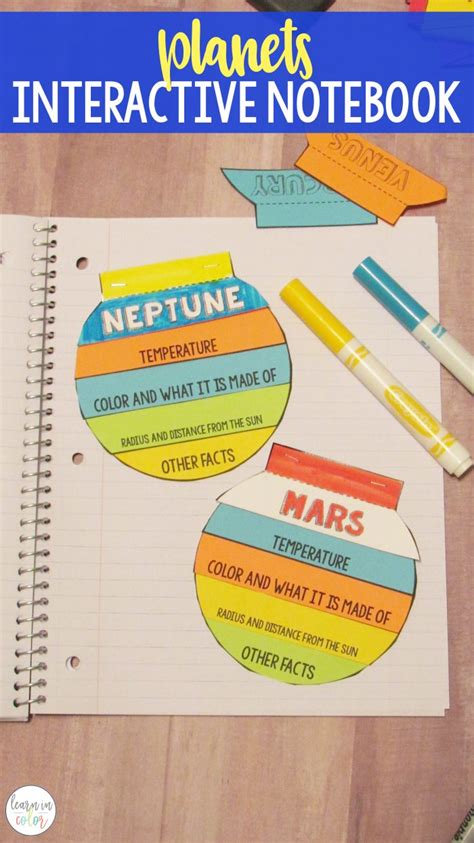 planets
INTERACTIVE NOTEBOOK
VENUS
NEPTUNE
TEMPERATURE
COLOR AND WHAT IT IS MADE OF
RADIUS AND DISTANCE FROM THE SUN
OTHER FACTS
MARS
TEMPERATURE
COLOR AND WHAT IT IS MADE OF
RADIUS AND DISTANCE FROM THE SUN
OTHER FACTS
learn in
color